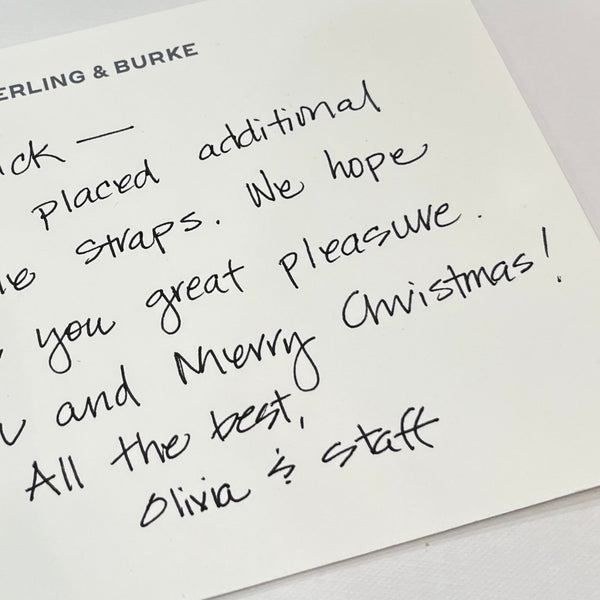 ERLING & BURKE
ck —
placed additional
straps. We hope
you great pleasure.
and Merry Christmas!
All the best,
Olivia & staff